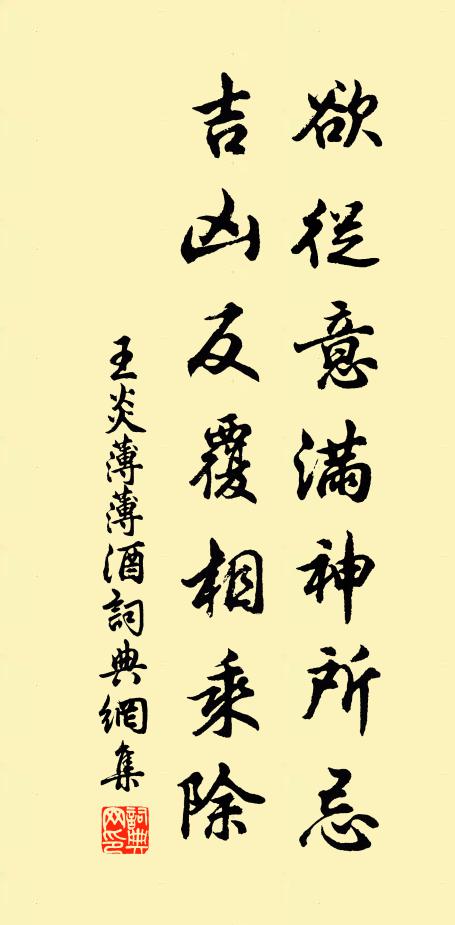 欲從意滿神所忌
吉凶反覆相乘除
王炎薄薄酒詞典網集
詞典网印